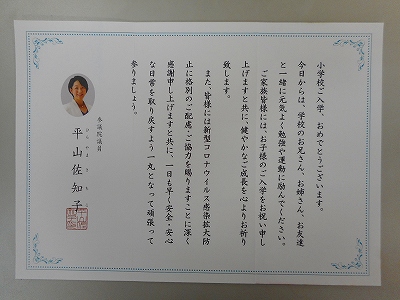 小学校ご入学、おめでとうございます。
今日からは、学校のお兄さん、お姉さん、お友達
と一緒に元気よく勉強や運動に励んでください。
ご家族皆様には、お子様のご入学をお祝い申し
上げますと共に、健やかなご成長を心よりお祈り
致します。
また、皆様には新型コロナウイルス感染拡大防
止に格別のご配慮・ご協力を賜りますことに深く
感謝申し上げますと共に、一日も早く安全・安心
な日常を取り戻すよう一丸となって頑張って
参りましょう。
参議院議員
平山佐知子
ひらやまさちこ